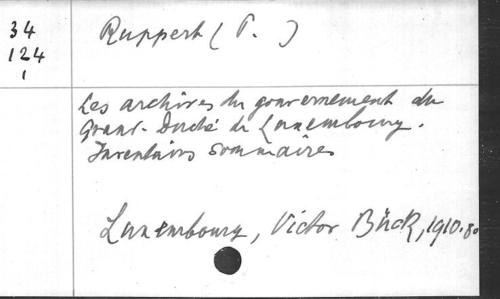 34
124
1
Ruppert (P. )
Les archives du gouvernement du
Grand-Duché de Luxembourg.
Inventaires sommaires
Luxembourg, Victor Bück, 1910. 8o